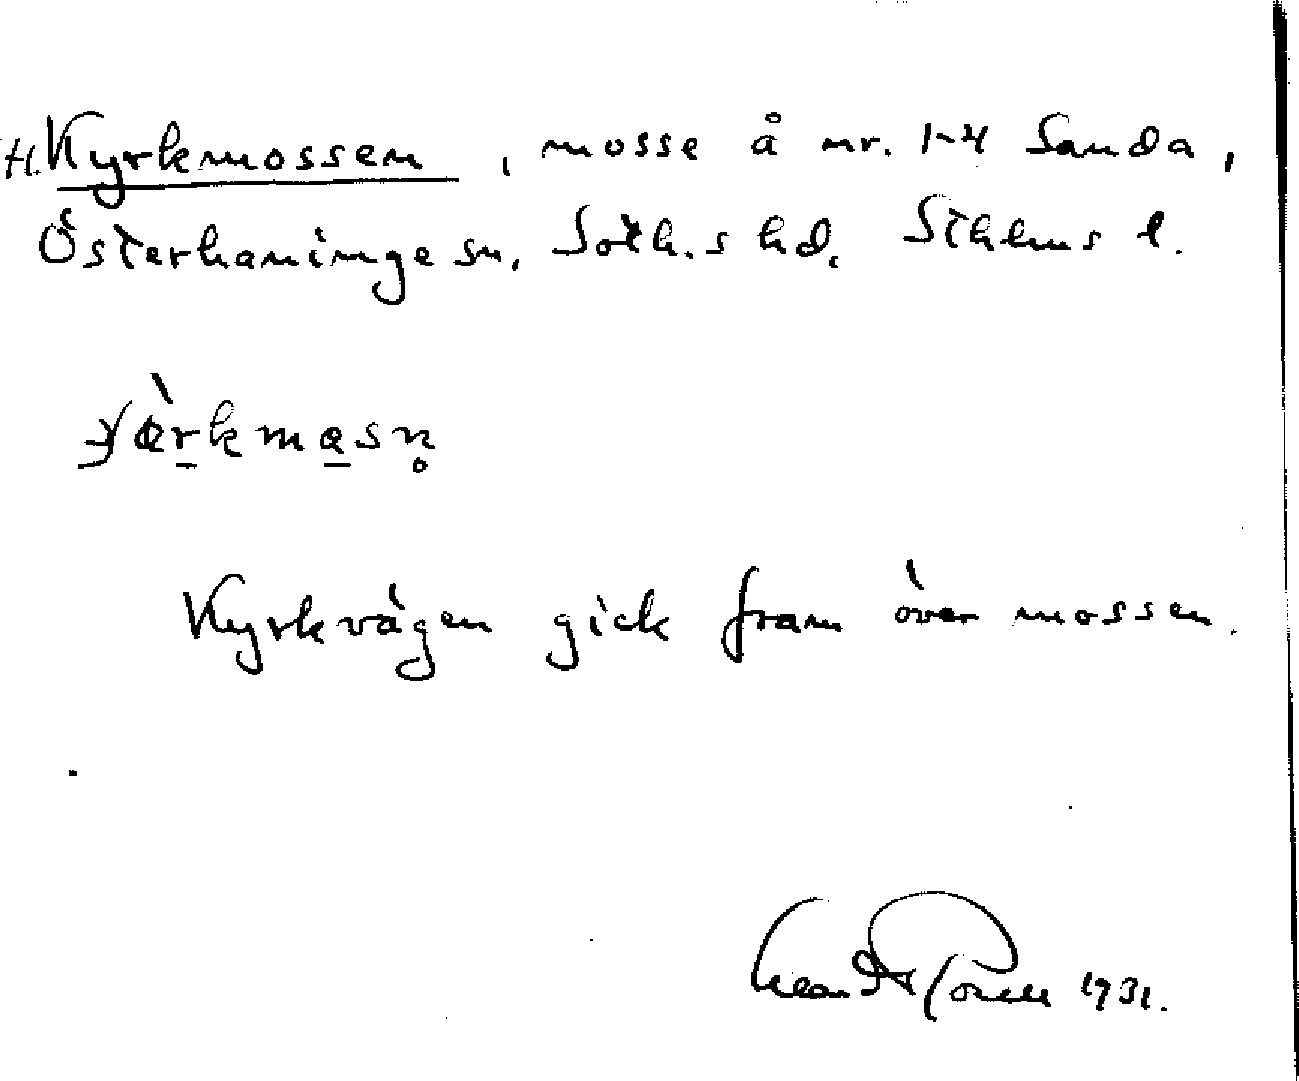 H. Kyrkmossen, mosse å nr. 1-4 Sanda,
Österhaninge sn, Soth.s hd. Sthlms l.
Kyrkvägen gick fram över mossen.
1931.